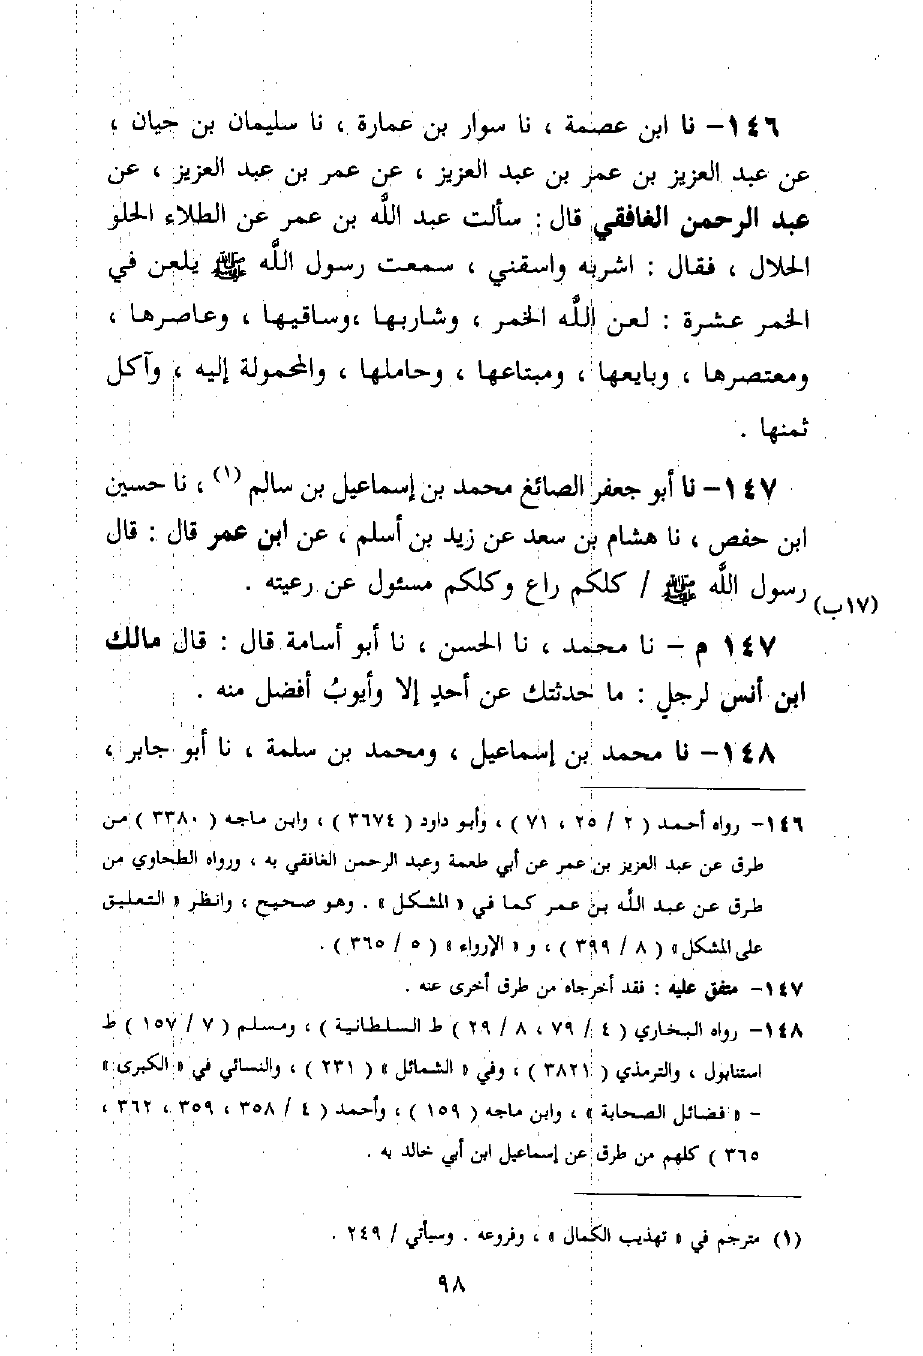 ١٤٦- نا ابن عصمة ، نا سوار بن عمارة ، نا سليمان بن حيان ،
عن عبد العزيز بن عمر بن عبد العزيز ، عن عمر بن عبد العزيز ، عن
عبد الرحمن الغافقي قال : سألت عبد الله بن عمر عن الطلاء الحلو
الحلال ، فقال : اشربه واسقني ، سمعت رسول الله ﷺ يلعن في
الخمر عشرة : لعن الله الخمر ، وشاربها ،وساقيها ، وعاصرها ،
ومعتصرها ، وبايعها ، ومبتاعها ، وحاملها ، والمحمولة إليه ، وآكل
ثمنها .
١٤٧- نا أبو جعفر الصائغ محمد بن إسماعيل بن سالم (١) ، نا حسين
ابن حفص ، نا هشام بن سعد عن زيد بن أسلم ، عن ابن عمر قال : قال
رسول الله ﷺ / كلكم راع وكلكم مسئول عن رعيته .
(١٧ب)
١٤٧ م - نا محمد ، نا الحسن ، نا أبو أسامة قال : قال مالك
ابن أنس لرجل : ما حدثتك عن أحدٍ إلا وأيوبُ أفضل منه .
١٤٨- نا محمد بن إسماعيل ، ومحمد بن سلمة ، نا أبو جابر ،
١٤٦- رواه أحمد ( ٢ / ٢٥ ، ٧١ ) ، وأبو داود ( ٣٦٧٤ ) ، وابن ماجه ( ٣٣٨٠ ) من
طرق عن عبد العزيز بن عمر عن أبي طعمة وعبد الرحمن الغافقي به ، ورواه الطحاوي من
طرق عن عبد الله بن عمر كما في « المشكل » . وهو صحيح ، وانظر « التعليق
على المشكل» ( ٨ / ٣٩٩ ) ، و « الإرواء » ( ٥ / ٣٦٥ ) .
١٤٧- متفق عليه : فقد أخرجاه من طرق أخرى عنه .
١٤٨- رواه البخاري ( ٤ / ٧٩ ، ٨ / ٢٩ ) ط السلطانية ) ، ومسلم ( ٧ / ١٥٧ ) ط
استنابول ، والترمذي ( ٣٨٢١ ) ، وفي « الشمائل » ( ٢٣١ ) ، والنسائي في « الكبرى »
- « فضائل الصحابة » ، وابن ماجه ( ١٥٩ ) ، وأحمد ( ٤ / ٣٥٨ ، ٣٥٩ ، ٣٦٢ ،
٣٦٥ ) كلهم من طرق عن إسماعيل ابن أبي خالد به .
(١) مترجم في « تهذيب الكمال » ، وفروعه . وسيأتي / ٢٤٩ .
٩٨